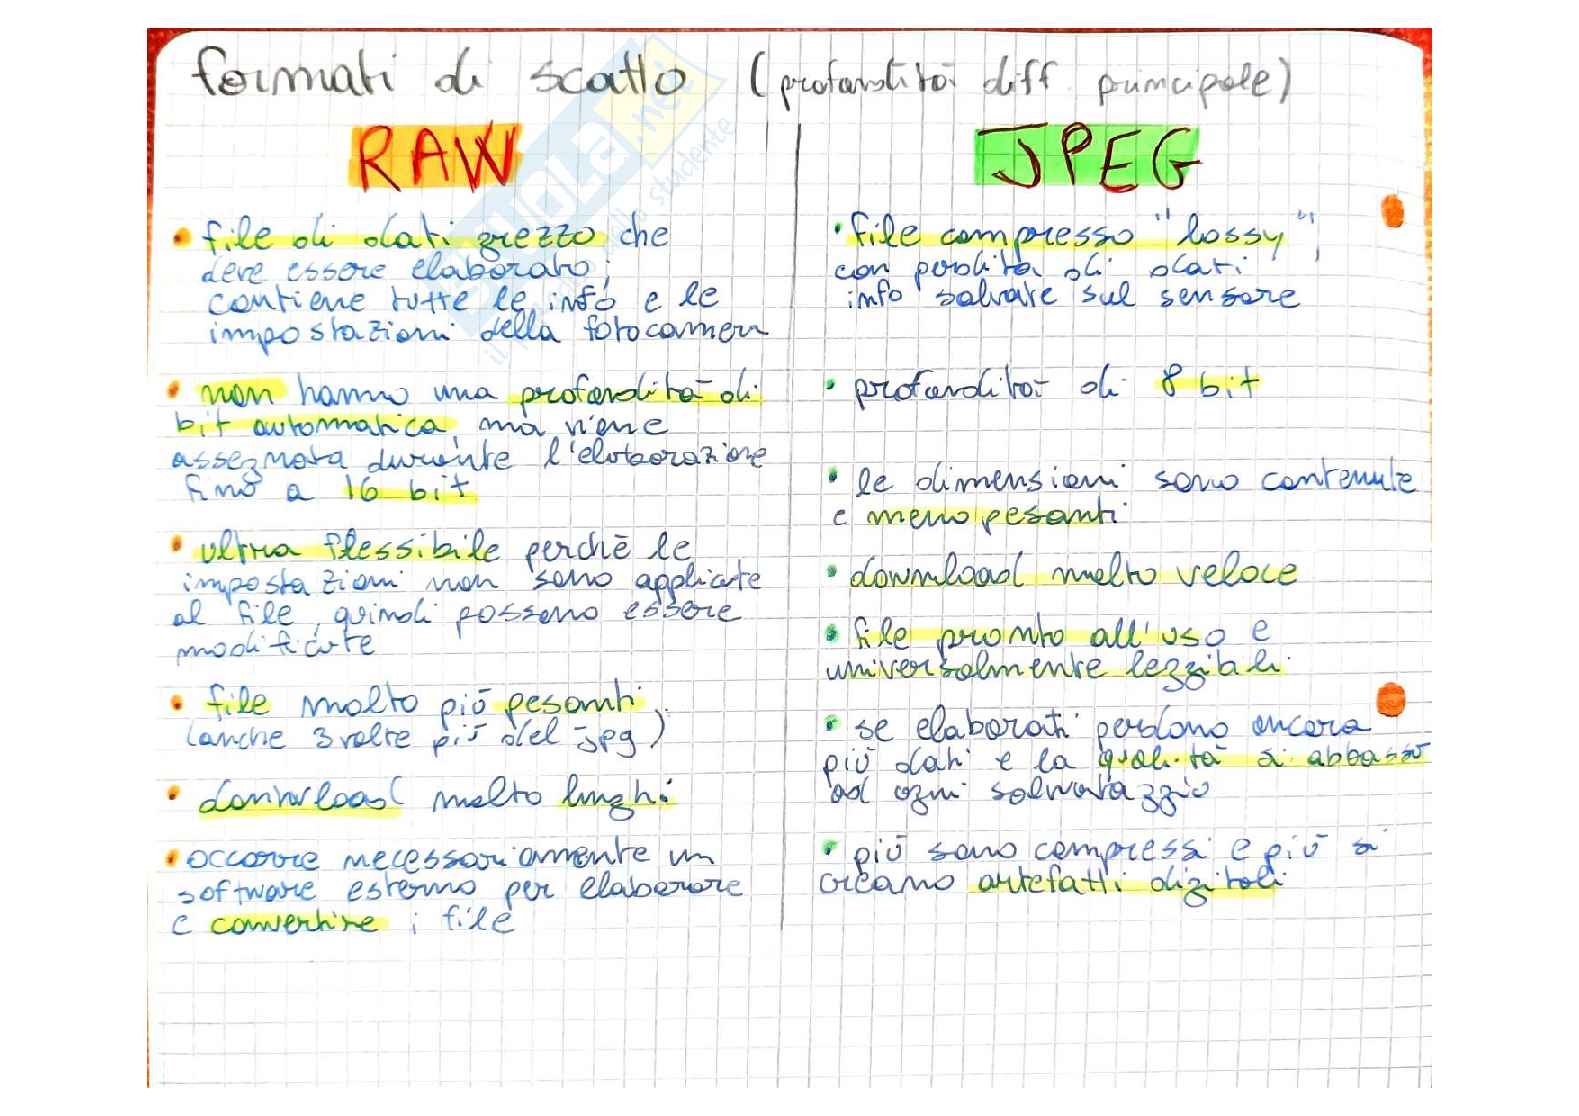 formati di scatto (profondità diff. principale)
RAW
• file di dati grezzo che
deve essere elaborato;
contiene tutte le info e le
impostazioni della fotocamera
• non hanno una profondità di
bit automatica, ma viene
assegnata durante l'elaborazione
fino a 16 bit
• ultra flessibile perchè le
impostazioni non sono applicate
al file, quindi possono essere
modificate
• file molto più pesanti
(anche 3 volte più del jpg)
• download molto lunghi
• occorre necessariamente un
software esterno per elaborare
e convertire i file
JPEG
• file compresso "lossy",
con perdita di dati
info salvate sul sensore
• profondità di 8 bit
• le dimensioni sono contenute
e meno pesanti
• download molto veloce
• file pronto all'uso e
universalmente leggibili
• se elaborati perdono ancora
più dati e la qualità si abbassa
ad ogni salvataggio
• più sono compressi e più si
creano artefatti digitali
SKUOLA.net